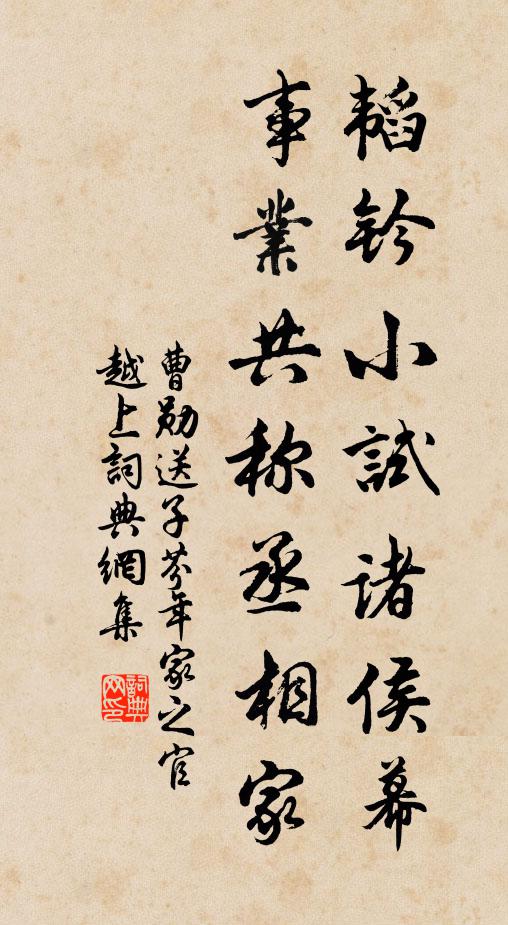 韬钤小試诸侯幕
事業共称丞相家
曹勛送子芩年家之官
越上詞典網集
詞典网印